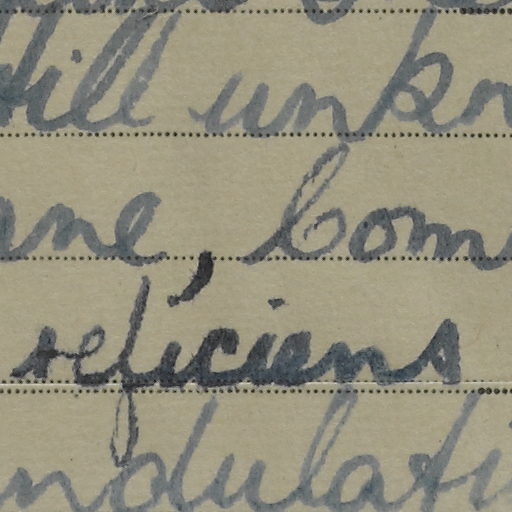 till unkn
ane, Com
reficiens
ndulati